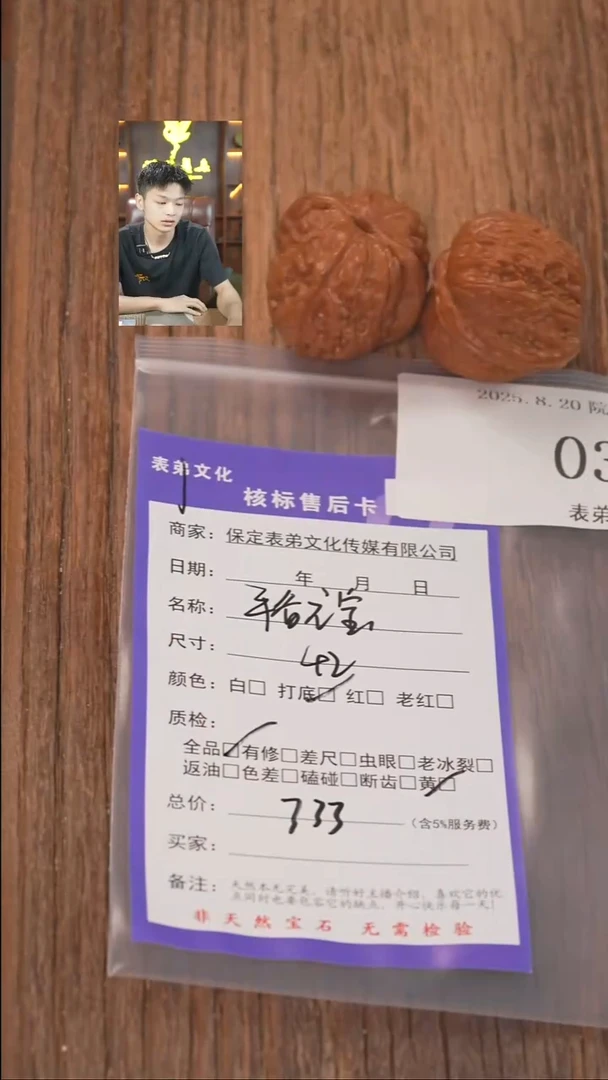 2025.8.20 院
03
表弟
表弟文化
核标售后卡
商家：保定表弟文化传媒有限公司
日期： 年 月 日
名称：平谷元宝
尺寸：42
颜色：白□ 打底☑ 红□ 老红□
质检：
全品☑有修□差尺□虫眼□老冰裂□
返油□色差□磕碰□断齿□黄☑
总价：733（含5%服务费）
买家：
备注：天然本无完美，请听好主播介绍，喜欢它的优
点同时也要包容它的缺点，开心快乐每一天！
非天然宝石 无需检验